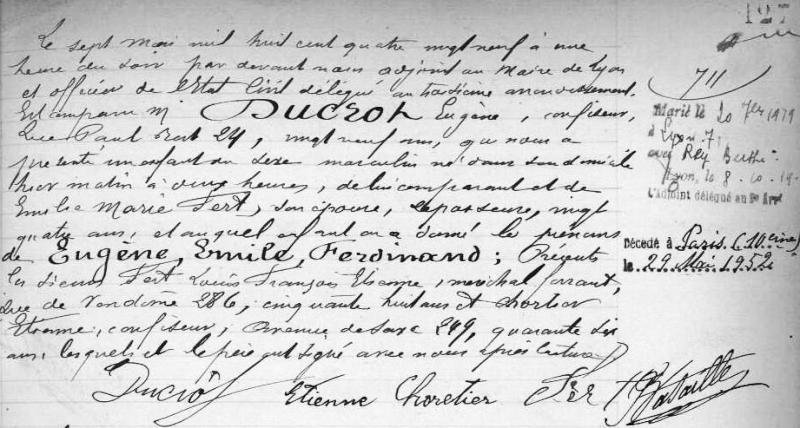 127
Le sept Mai mil huit cent quatre vingt neuf à une
heure du soir par devant nous adjoint au Maire de Lyon
et officier de l'Etat Civil délégué au troisième arrondissement,
Est comparu M DUCROT Eugène, confiseur,
Rue Paul Bert 24, vingt neuf ans, qui nous a
présenté un enfant du sexe masculin né dans son domicile
hier matin à onze heures, de lui comparant et de
Emilie Marie Fert, son épouse, repasseuse, vingt
quatre ans, et auquel enfant on a donné les prénoms
de Eugène, Emile, Ferdinand; Présents
les sieurs Fert Louis François Etienne, maréchal ferrant,
Rue de Vendôme 286, cinquante huit ans et Choretier
Etienne, confiseur, Avenue de Saxe 249, quarante six
ans, lesquels et le père ont signé avec nous après lecture
Ducrot Etienne Choretier Fert Bataille
711
Marié le 20 7bre 1919
à Lyon 7
avec Rey Berthe
Lyon, le 8. 10. 19
L'Adjoint délégué au
Décédé à Paris (10eme)
le 29 Mai 1952